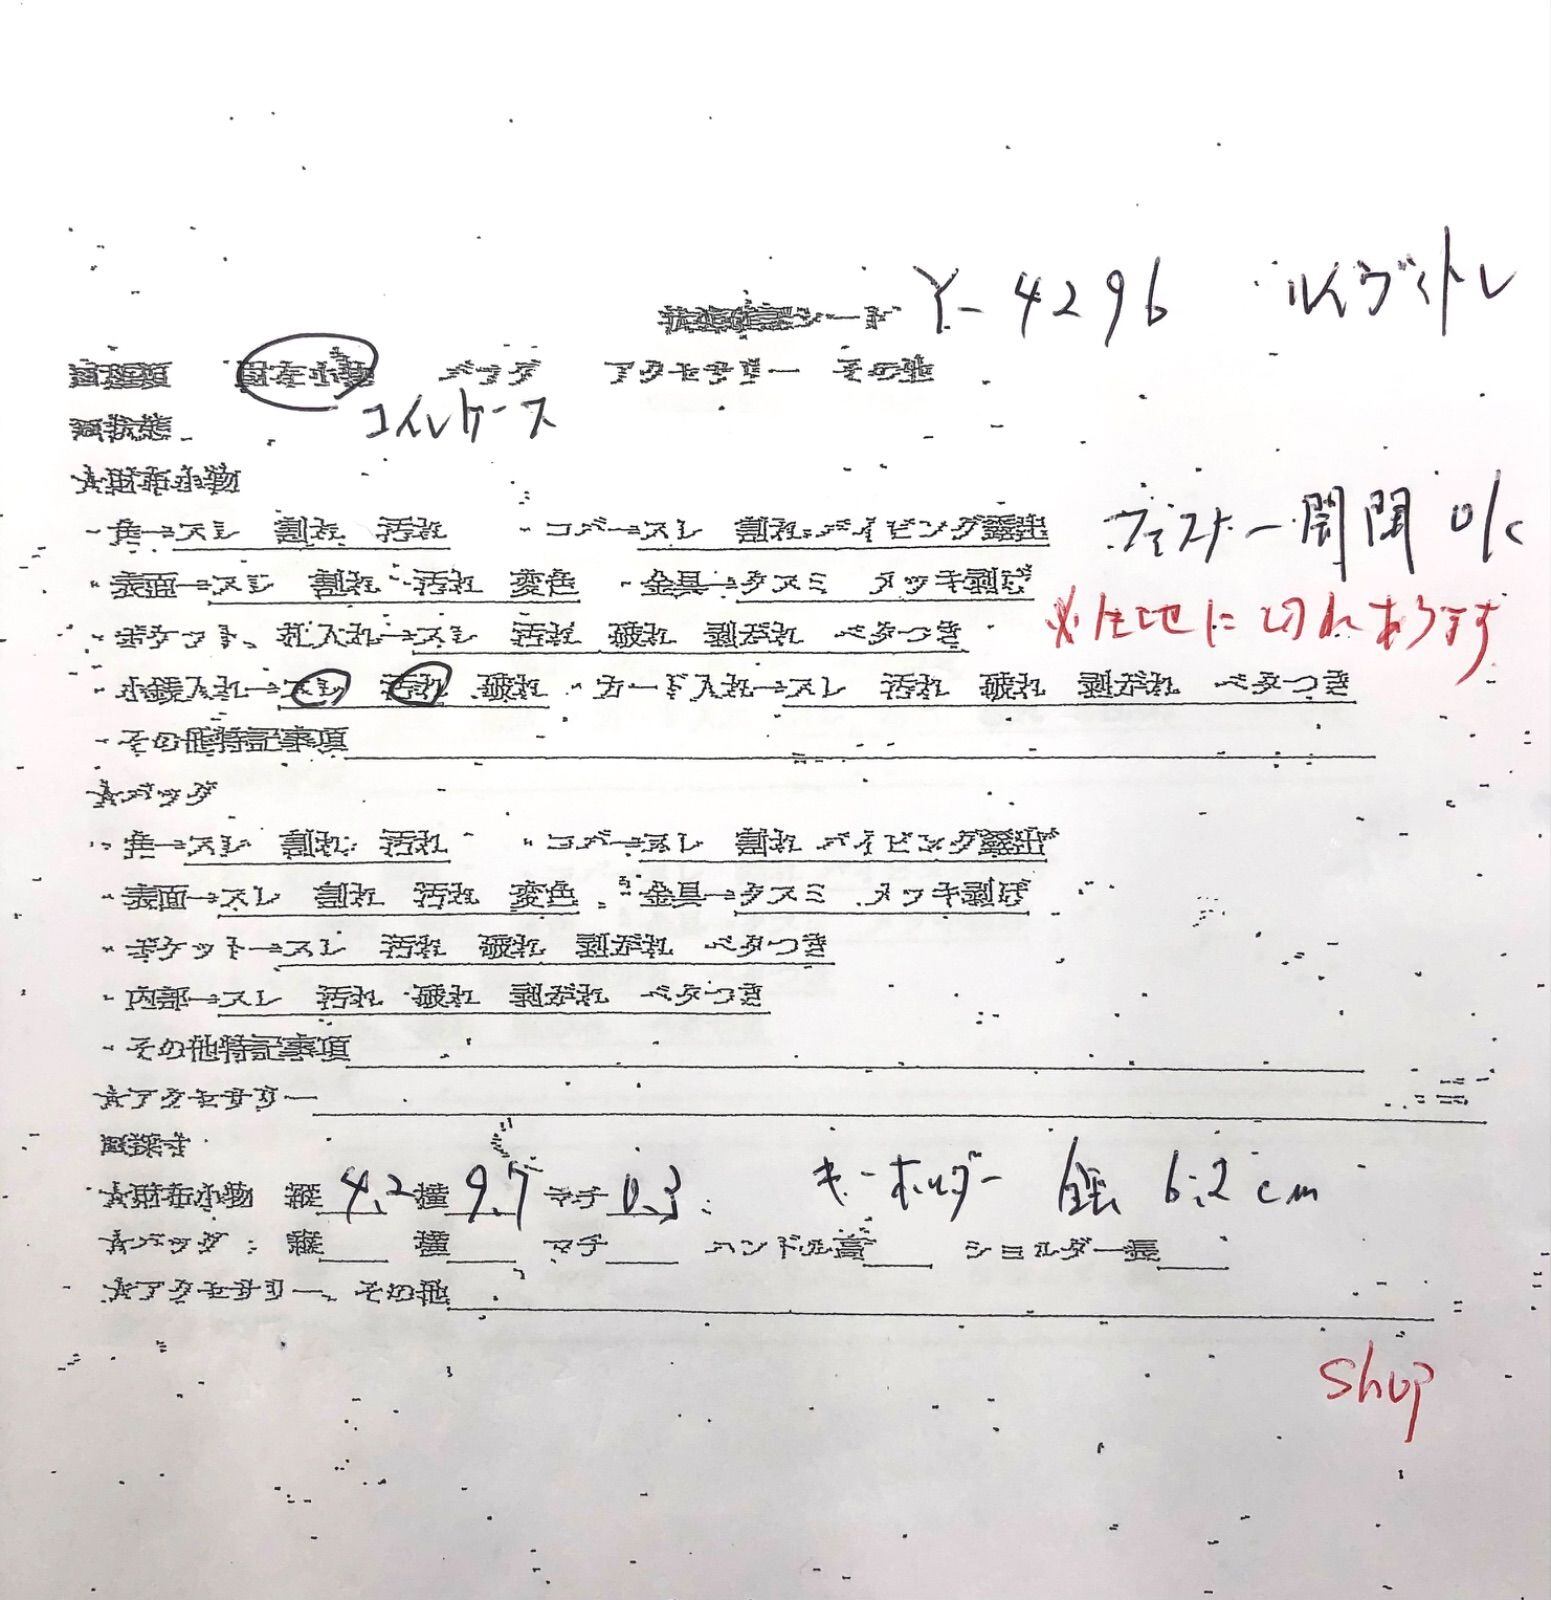 状態確認シート Y-4296 ルイヴィトン
■種類 財布小物 バッグ アクセサリー その他
■状態 コインケース
★財布小物
・角→スレ 割れ 汚れ ・コバ→スレ 割れ パイピング露出 ファスナー開閉OK
・表面→スレ 割れ 汚れ 変色 ・金具→クスミ メッキ剥げ
・ポケット、札入れ→スレ 汚れ 破れ 剥がれ ベタつき ※生地に切れあります
・小銭入れ→スレ 汚れ 破れ ・カード入れ→スレ 汚れ 破れ 剥がれ ベタつき
・その他特記事項
★バッグ
・角→スレ 割れ 汚れ ・コバ→スレ 割れ パイピング露出
・表面→スレ 割れ 汚れ 変色 ・金具→クスミ メッキ剥げ
・ポケット→スレ 汚れ 破れ 剥がれ ベタつき
・内部→スレ 汚れ 破れ 剥がれ ベタつき
・その他特記事項
★アクセサリー
■採寸
★財布小物 縦4.2 横9.7 マチ0.3 キーホルダー 全長 6.2cm
★バッグ: 縦 横 マチ ハンドル高 ショルダー長
★アクセサリー、その他
shop